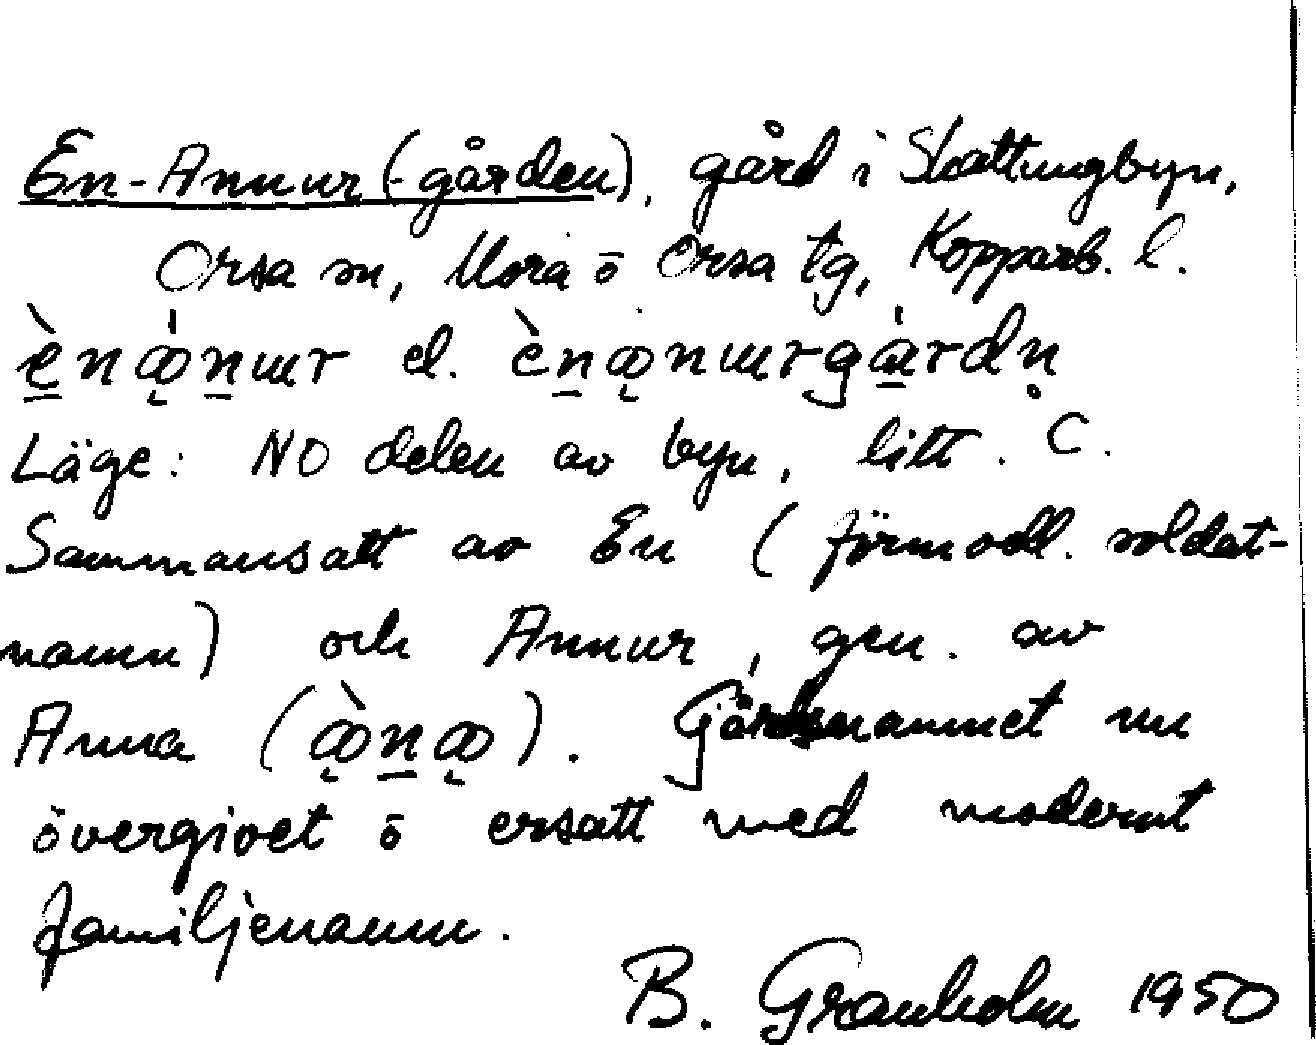 En-Annur (-gården), gård i Skattungbyn,
Orsa sn, Mora o Orsa tg, Kopparb. l.
ènąnɯr el. ènąnɯrgárdṇ
Läge: NO delen av byn, litt. C.
Sammansatt av En (förmodl. soldat-
namn) och Annur, gen. av
Anna (ą̀ną). Gårdsnamnet nu
övergivet o ersatt med modernt
familjenamn.
B. Granholm 1950